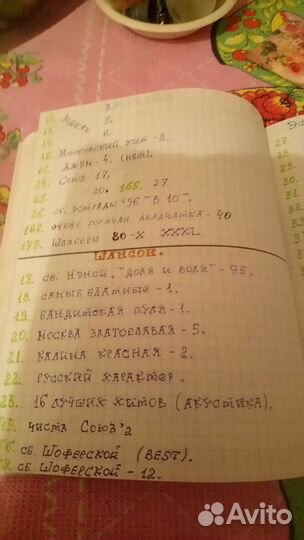 12. 3.
13. 5.
14. 6.
15. Московский хит - 2.
16. Джем - 4. (нет).
24. Союз 17.
-20. 165. 27
26. сб. эстрады "96 "в 10".
162. очень горячая десятка - 40
173. Шлягеры 80-х XXXL
Шансон.
17. сб. Нэнси, "Доля и воля" - 95.
18. самые блатные - 1.
19. бандитская пуля - 1.
20. Москва златоглавая - 5.
21. Калина красная - 2.
22. русский характер.
23. 16 лучших хитов (акустика).
чиста Союз'2
сб. Шоферской (BEST).
сб. Шоферской - 12.
Эс
27.
28.
29.
30
31
32
Avito